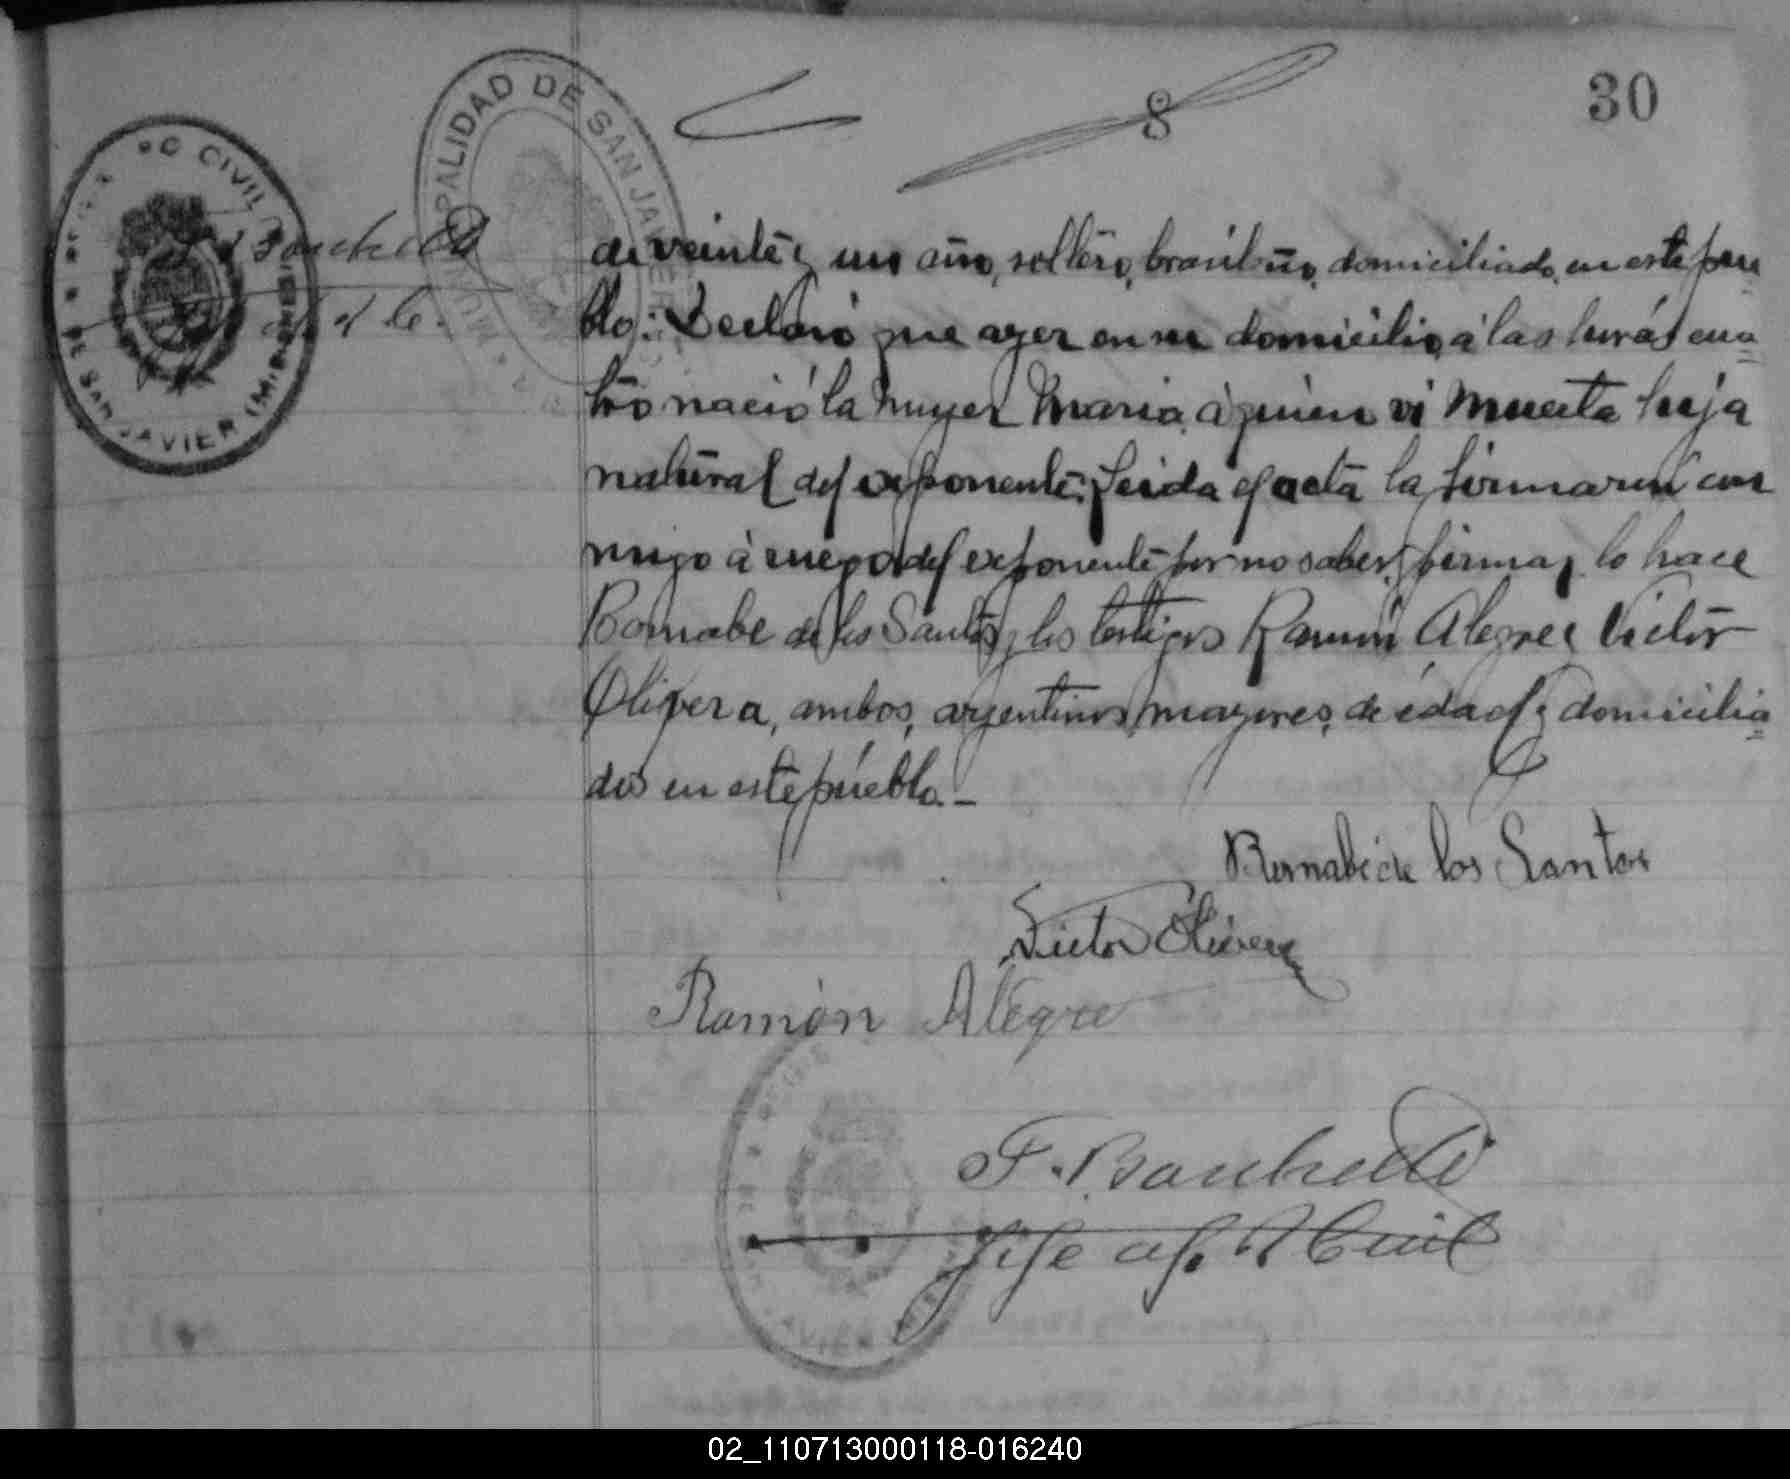 30
8
MUNICIPALIDAD DE SAN JAVIER
CIVIL
DE SAN JAVIER (MISIONES)
F. Bouchetti
de veinte y un año, soltero, brasileño, domiciliado en este pue
blo: Declaró que ayer en su domicilio, á las horas cua=
tro nació la mujer Maria, á quien vi muerta hija
natural del exponente. Leida el acta la firmaron con
migo á ruego del exponente por no saber firmar lo hace
Bernabe de los Santos, y los testigos Ramón Alegre e Victor
Olivera, ambos, argentinos mayores, de edad y domicilia=
dos en este pueblo. -
Bernabé de los Santos
Victor Olivera
Ramón Alegre
F. Bouchetti
Jefe del R Civil
02_110713000118-016240